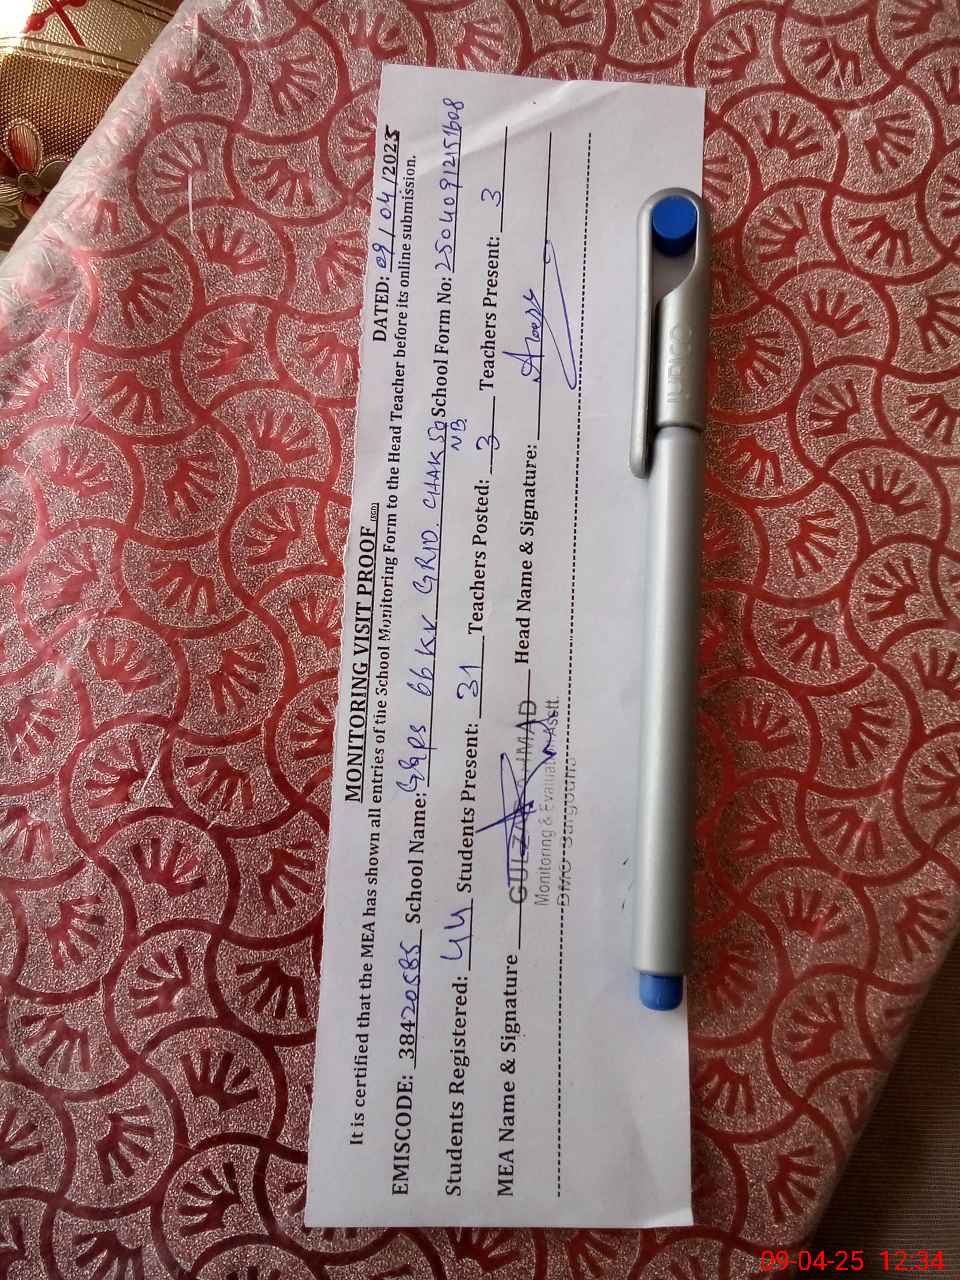 MONITORING VISIT PROOF (SGD)
DATED: 09/04/2025
It is certified that the MEA has shown all entries of the School Monitoring Form to the Head Teacher before its online submission.
EMISCODE: 38420585 School Name: GGPS 66 KV GRID. CHAK 50 NB School Form No: 2504091215
Students Registered: 44 Students Present: 31 Teachers Posted: 3 Teachers Present: 3
MEA Name & Signature Head Name & Signature:
Monitoring & Evaluation Asstt.
DMO Sargodha
09-04-25 12:34